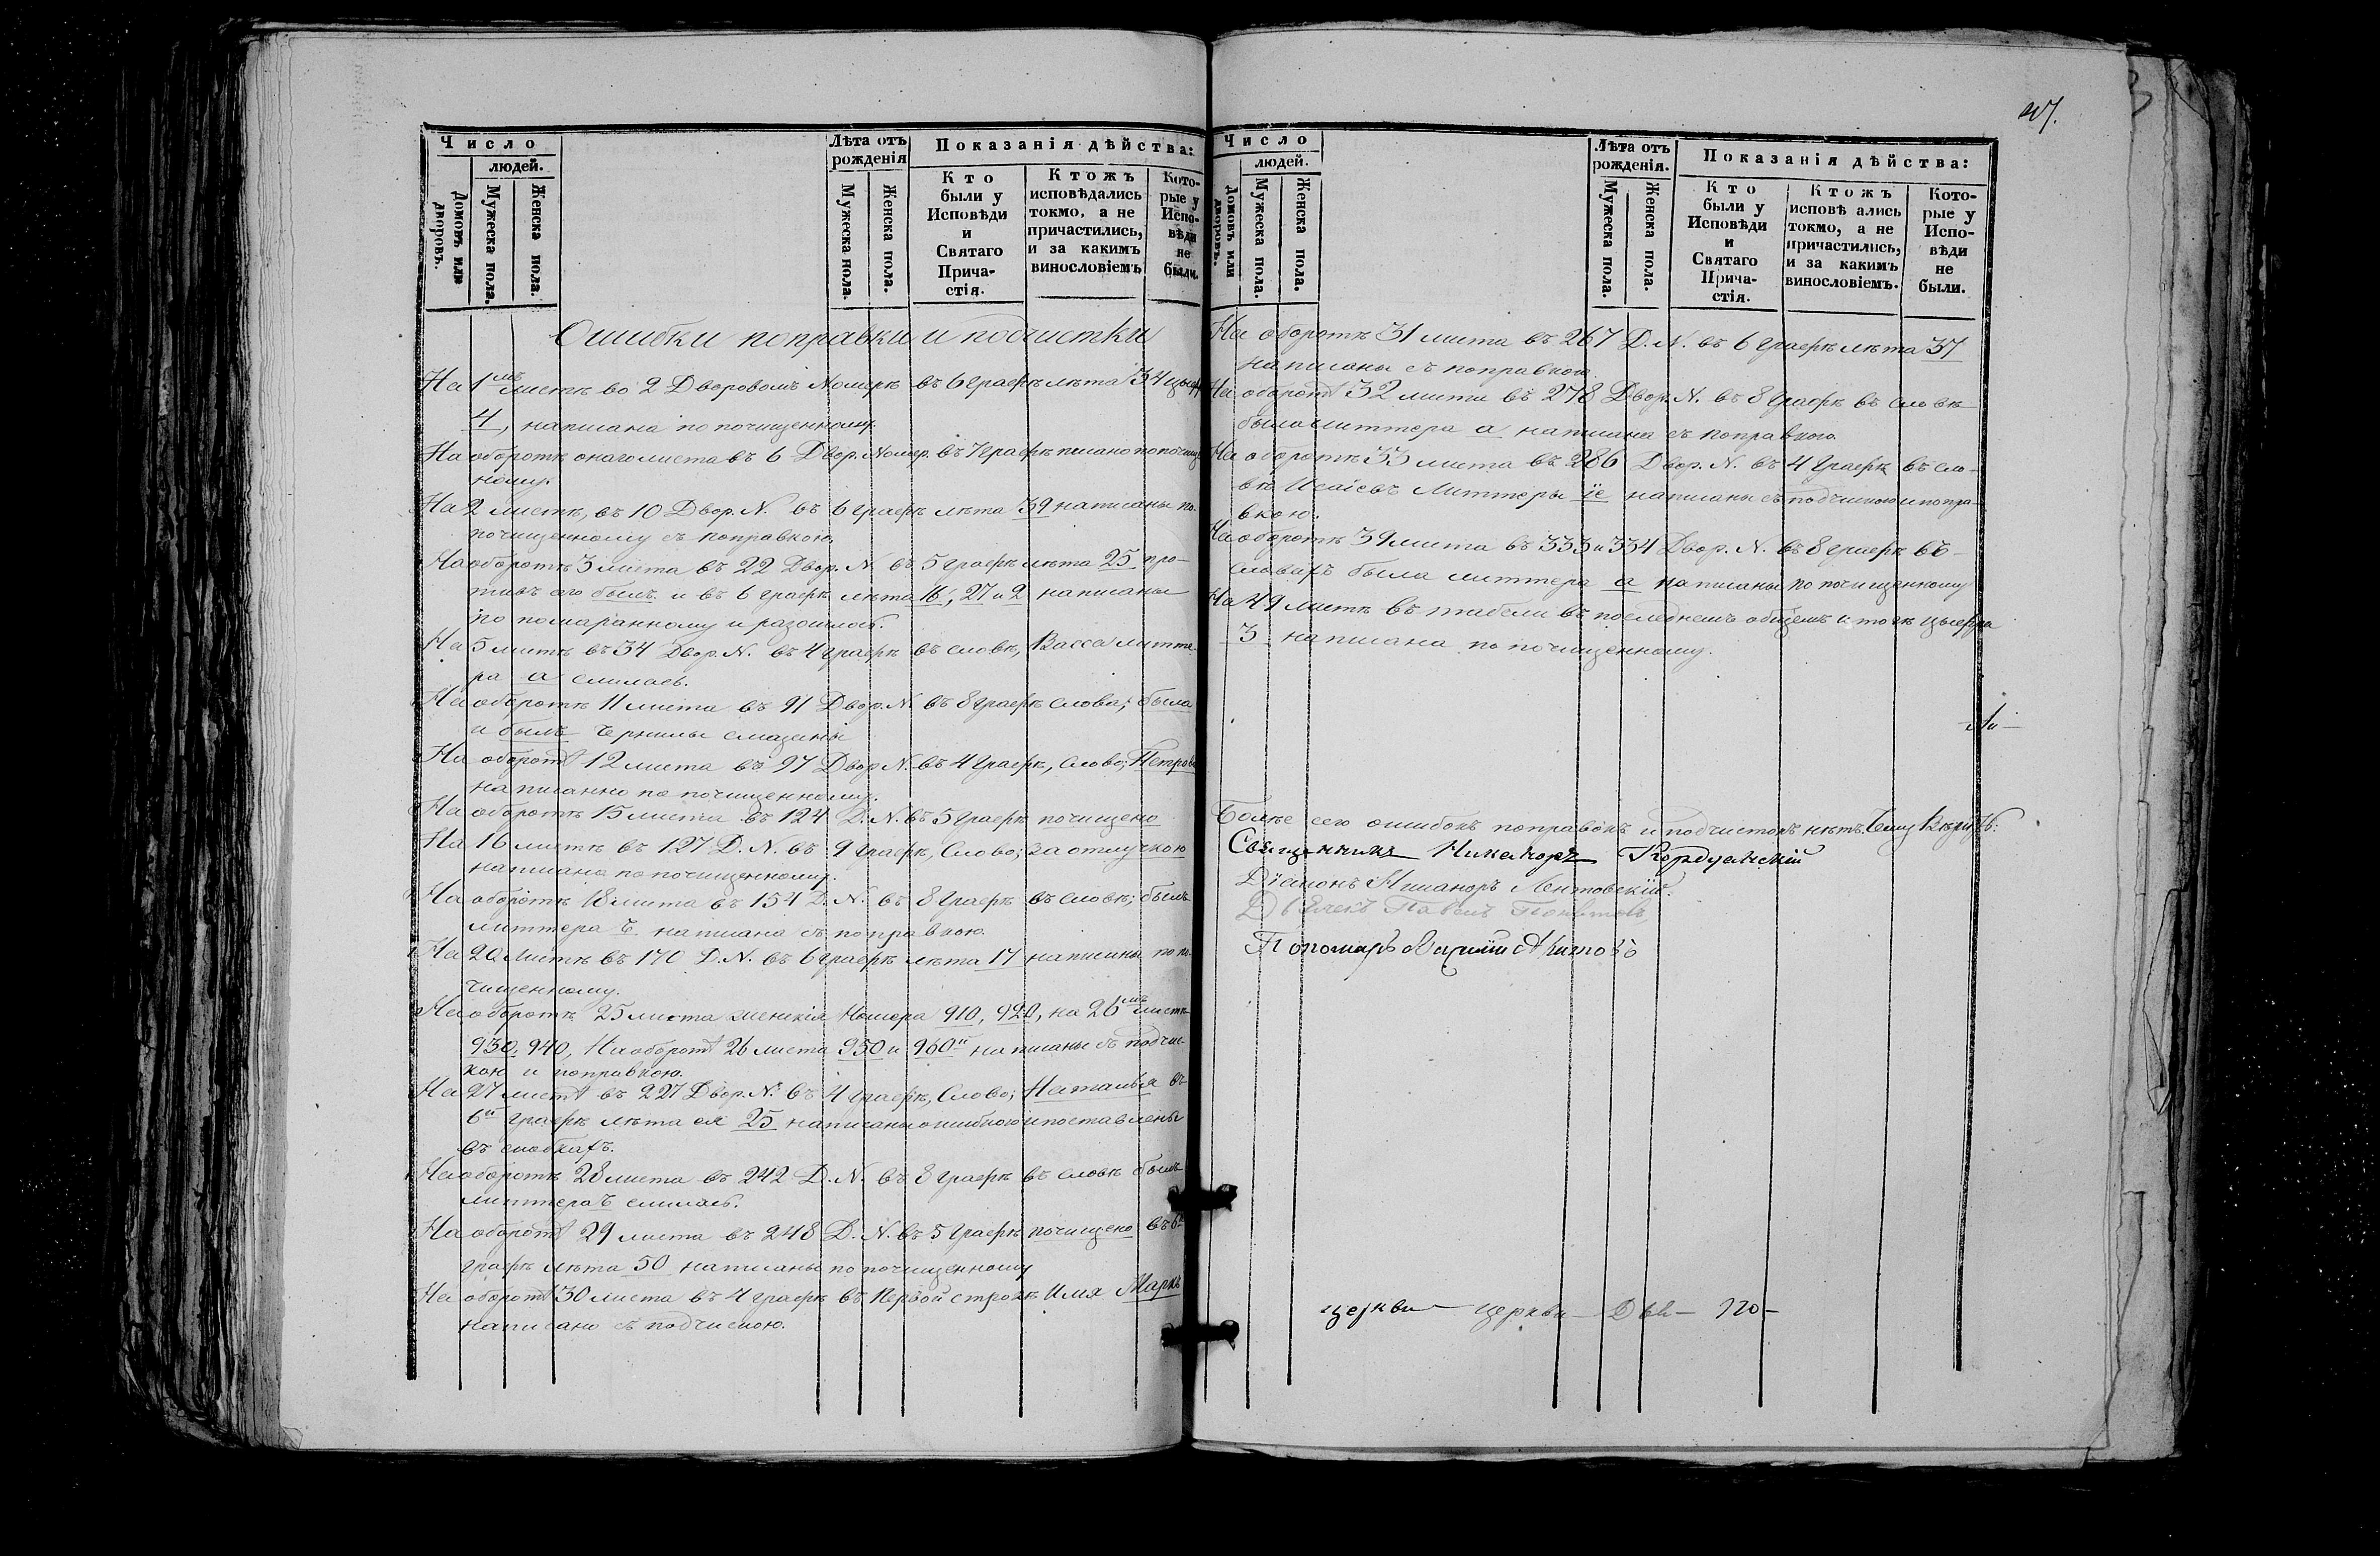 Число
людей.
Домовъ или дворовъ.
Мужеска пола.
Женска пола.
Лѣта отъ рожденія
Мужеска пола.
Женска пола.
Показанія дѣйства:
Кто были у Исповѣди и Святаго Прича-стія.
Ктожъ исповѣдались токмо, а не причастились, и за какимъ винословіемъ
Кото-рые у Испо-вѣди не были.
Ошибки поправки и подчистки
На 1мъ листѣ во 2 Дворовомъ Номерѣ въ 6 графѣ лѣта 34 цыфр
4, написана по почищенному.
На оборотѣ онаго листа въ 6 Двор. Номер. въ 7 графѣ писано по почище
ному.
На 2 листѣ, въ 10 Двор. N. въ 6 графѣ лѣта 39 написаны по
почищенному съ поправкою.
На оборотѣ 3 листа въ 22 Двор. N. въ 5 графѣ лѣта 25 про-
тивъ его былъ и въ 6 графѣ лѣта 16, 27 и 2 написаны
по помаранному и разошлось.
На 5 листѣ въ 34 Двор. N. въ 4 графѣ въ словѣ, Васса литте-
ра а слилась.
На оборотѣ 11 листа въ 91 Двор. N. въ 8 графѣ слова; была
и былъ чернилы смазаны
На оборотѣ 12 листа въ 97 Двор N. въ 4 графѣ, слово; Петрова
написанно по почищенному.
На оборотѣ 15 листа въ 124 Д. N. въ 5 графѣ почищено
На 16 листѣ въ 127 Д. N. въ 9 графѣ, Слово; за отлучкою
написано по почищенному.
На оборотѣ 18 листа въ 154 Д. N. въ 8 графѣ въ словѣ; былъ
литтера ъ написана съ поправкою.
На 20 листѣ въ 170 Д. N. въ 6 графѣ лѣта 17 написаны по по-
чищенному.
На оборотѣ 25 листа женскія Номера 910, 920, на 26мъ листѣ
930, 940, На оборотѣ 26 листа 950 и 960й написаны съ подчис-
кою и поправкою.
На 27 листѣ въ 227 Двор. N. въ 4 графѣ, Слово; Наталья въ
6й графѣ лѣта ея 25 написаны ошибкою и поставлены
въ скобкахъ.
На оборотѣ 28 листа въ 242 Д. N. въ 8 графѣ въ словѣ былъ
литтера ъ слилась.
На оборотѣ 29 листа въ 248 Д. N. въ 5 графѣ почищено въ 6й
графѣ лѣта 50 написаны по почищенному
На оборотѣ 30 листа въ 4 графѣ въ Первой строкѣ Имя Маркъ
написано съ подчискою.
Число
людей.
Домовъ или дворовъ.
Мужеска пола.
Женска пола.
Лѣта отъ рожденія.
Мужеска пола.
Женска пола.
Показанія дѣйства:
Кто были у Исповѣди и Святаго Прича-стія.
Ктожъ исповѣ ались токмо, а не причастились, и за какимъ винословіемъ.
Кото-рые у Испо-вѣди не были.
На оборотѣ 31 листа въ 267 Д. N. въ 6 графѣ лѣта 37
написаны съ поправкою
На оборотѣ 32 листа въ 278 Двор. N. въ 8 графѣ въ словѣ
была литтера а написана съ поправкою.
На оборотѣ 33 листа въ 286 Двор. N. въ 4 графѣ въ сло-
вѣ Исаіевъ Литтеры іе написаны съ подчискою и попра-
вкою.
На оборотѣ 39 листа въ 333 и 334 Двор. N. въ 8 графѣ въ
словахъ была литтера а написаны по почищенному
На 49 листѣ въ табели въ последнемъ общемъ итогѣ цыфра
3 написана по почищенному.
Болѣе сего ошибокъ поправокъ и подчистокъ нѣтъ.
Священникъ Никаноръ
Діаконъ Никаноръ Лентовскій.
Пономарь
церкви церкви Двѣ